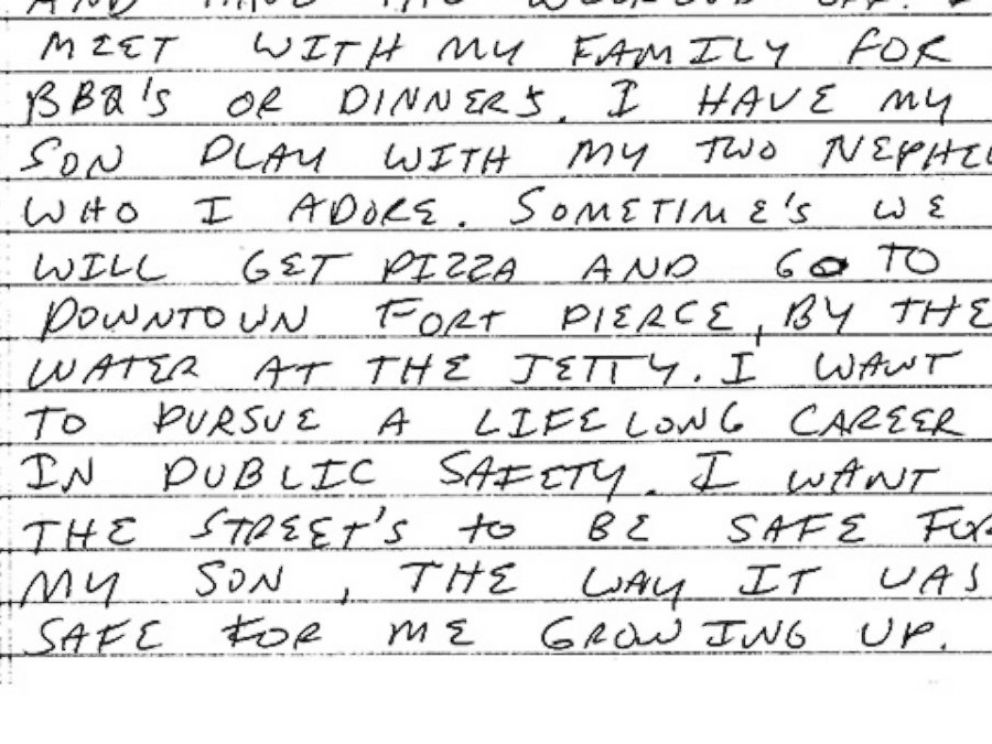 AND HAVE THE WEEKEND OFF. I
MEET WITH MY FAMILY FOR
BBQ'S OR DINNERS. I HAVE MY
SON PLAY WITH MY TWO
WHO I ADORE. SOMETIME'S WE
WILL GET PIZZA AND GO TO
DOWNTOWN FORT PIERCE, BY THE
WATER AT THE JETTY. I WANT
TO PURSUE A LIFELONG CAREER
IN PUBLIC SAFETY. I WANT
THE STREET'S TO BE SAFE FOR
MY SON, THE WAY IT WAS
SAFE FOR ME GROWING UP.